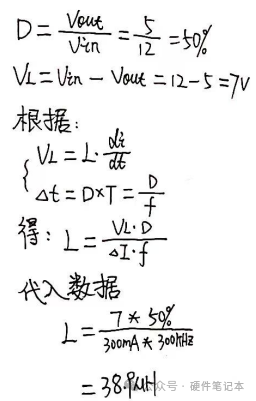 D = Vout/Vin = 5/12 = 50%
VL = Vin - Vout = 12 - 5 = 7V
根据:
{ VL = L· di/dt
Δt = D×T = D/f
得: L = VL·D/ΔI·f
代入数据
L = 7 * 50%/300mA * 300KHz
= 38.9uH
公众号 · 硬件笔记本